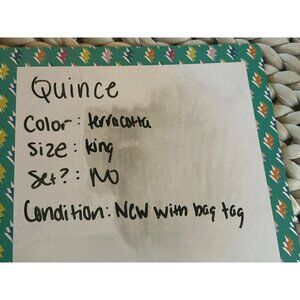 Quince
Color: terracotta
Size: king
Set?: NO
Condition: New with bag tag